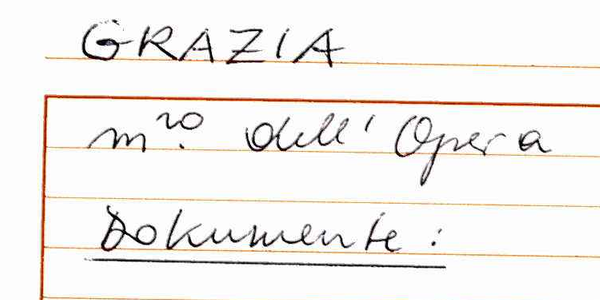 GRAZIA
m.ro dell' Opera
Dokumente: